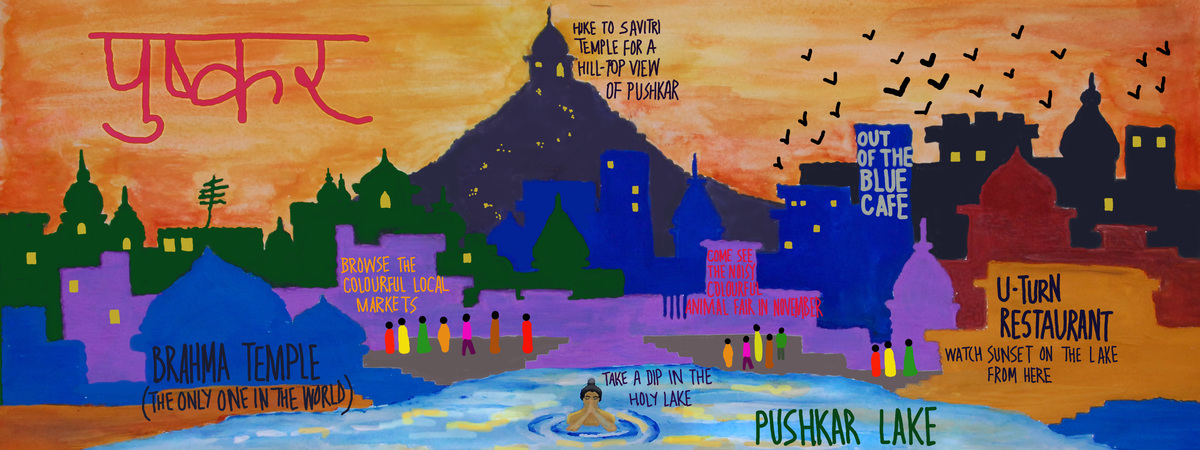 पुष्कर
HIKE TO SAVITRI
TEMPLE FOR A
HILL-TOP VIEW
OF PUSHKAR
OUT
OF THE
BLUE
CAFE
BROWSE THE
COLOURFUL LOCAL
MARKETS
COME SEE
THE NOISY
COLOURFUL
ANIMAL FAIR IN NOVEMBER
U-TURN
RESTAURANT
WATCH SUNSET ON THE LAKE
FROM HERE
BRAHMA TEMPLE
(THE ONLY ONE IN THE WORLD)
TAKE A DIP IN THE
HOLY LAKE
PUSHKAR LAKE